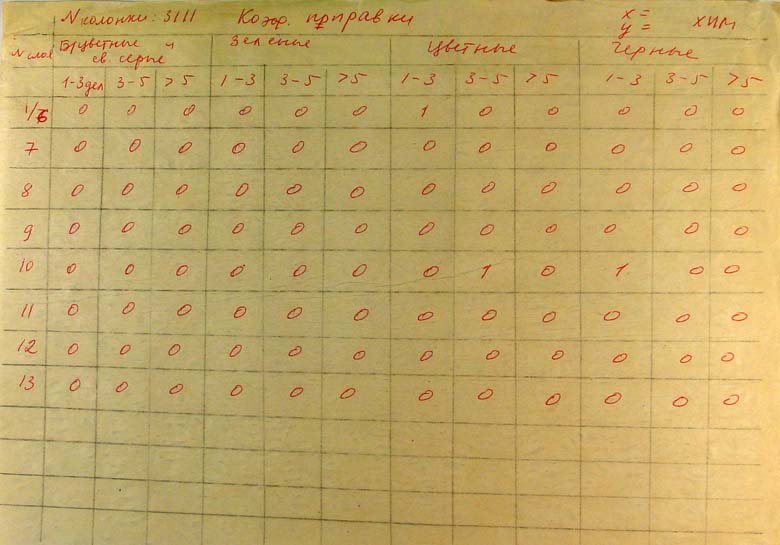 N колонки: 3111 Коэф. поправки x= хим
y=
N слоя Б/цветные и Зеленые Цветные Черные
св. серые
1-3 дел 3-5 >5 1-3 3-5 >5 1-3 3-5 >5 1-3 3-5 >5
1/6 0 0 0 0 0 0 1 0 0 0 0 0
7 0 0 0 0 0 0 0 0 0 0 0 0
8 0 0 0 0 0 0 0 0 0 0 0 0
9 0 0 0 0 0 0 0 0 0 0 0 0
10 0 0 0 0 0 0 0 1 0 1 0 0
11 0 0 0 0 0 0 0 0 0 0 0 0
12 0 0 0 0 0 0 0 0 0 0 0 0
13 0 0 0 0 0 0 0 0 0 0 0 0